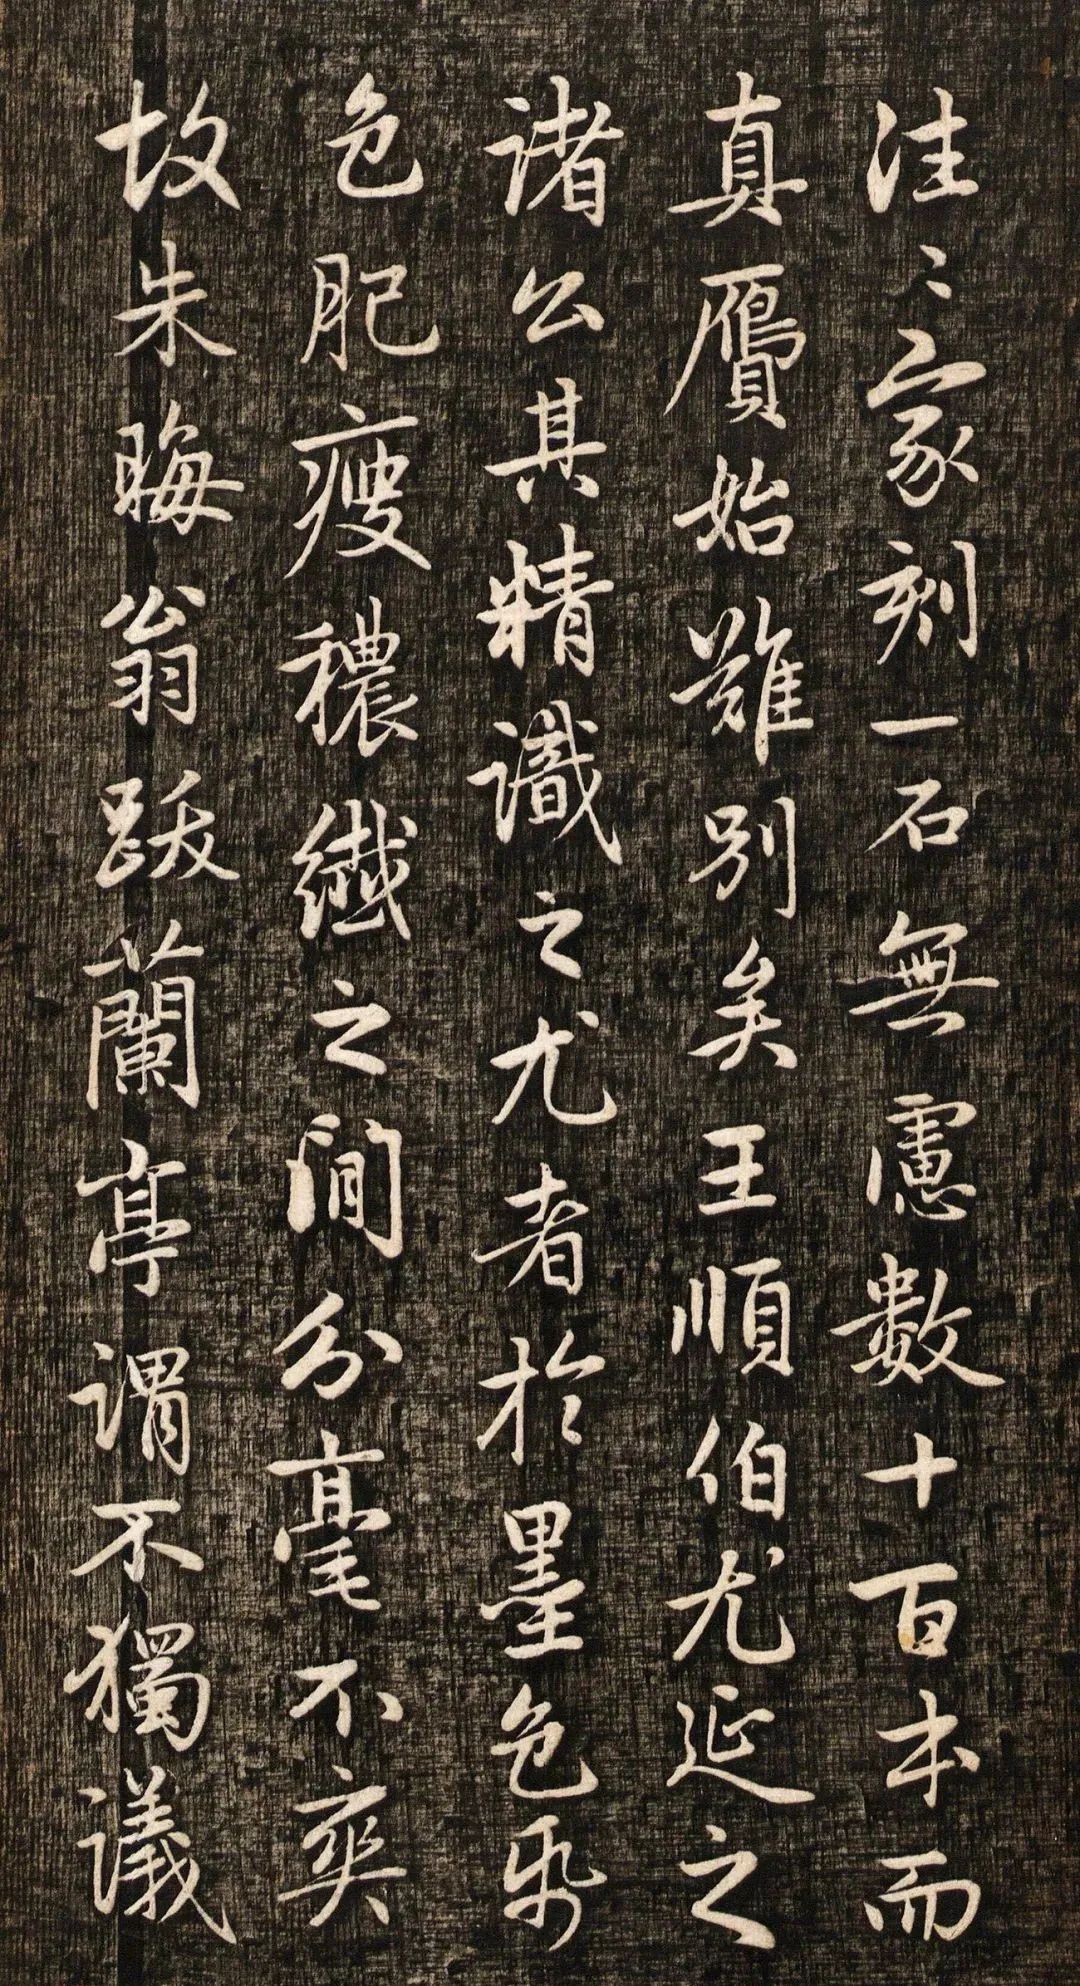 往々家刻一石無慮數十百本而
真贗始難別矣王順伯尤延之
諸公其精識之尤者於墨色紙
色肥瘦穠纖之間分毫不爽
故朱晦翁跋蘭亭謂不獨議